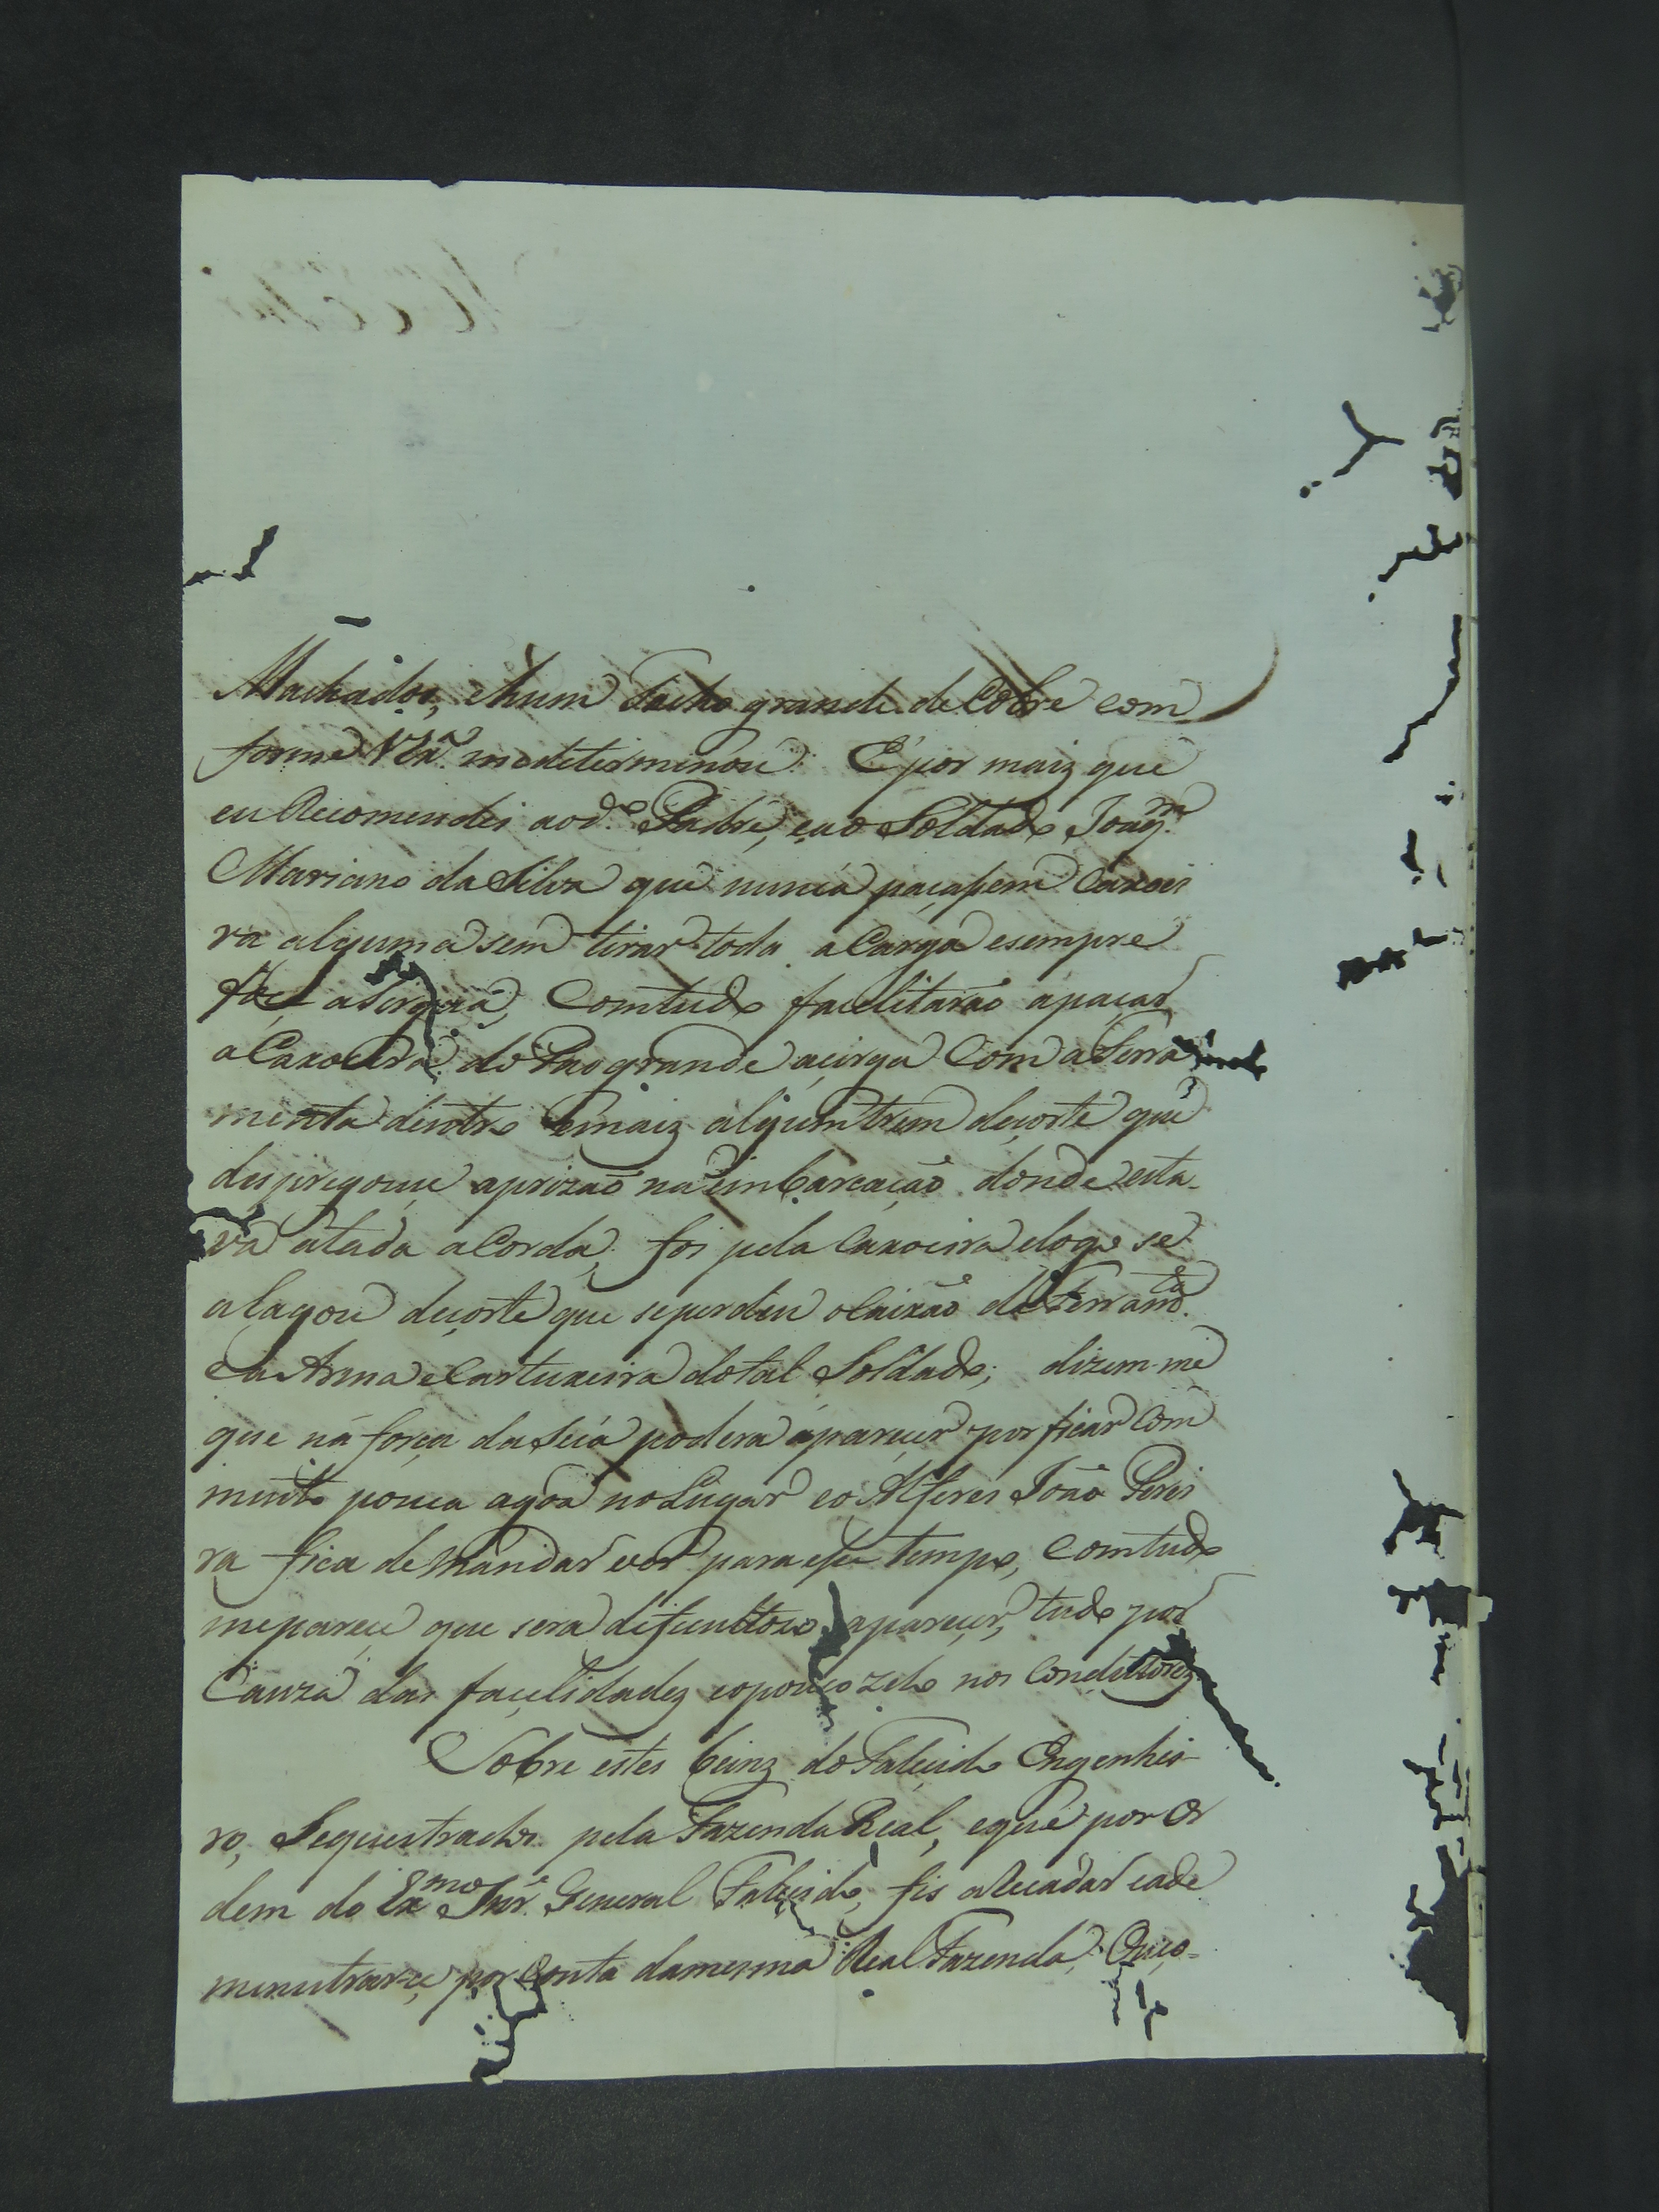 Machados, e hum Tacho grande de Cobre com
forme V Exª me detirminou. E por maiz que
eu Recomendei ao d.º Padre, e a o Soldado Joaq.m
Mariano da Silva que nunca paçaçem Caxoei
ra alguma sem tirar toda a Carga e sempre
a Cirga, Comtudo facelitarão a paçar
a Caxoeira do Pao grande a çirga Com a Ferra
menta dentro e maiz algum trem de çorte que
dispregouçe a prizão na embarcação donde esta-
va atada a Corda, foi pela Caxoeira e logo se
alagou deçorte que se perdeu o Caixão da Ferram.ta
e a Arma e Cartuxeira do tal Soldado; dizem-me
que na força da Seca podera apareçer por ficar Com
muito pouca agoa no Lugar e o Alferes João Perei
ra fica de mandar ver para esse tempo, Comtudo
me pareçe que sera dificultozo apareçer, tudo por
Cauza das façelidadez e o pouco zelo nos Condutorez
Sobre estes beinz do Faleçido Engenhei-
ro, Sequestrados pela Fazenda Real, e que por Or
dem do Ex.mo Snr. General Faleçido, fis arecadar e ade
menistrarçe por Conta da mesma Real Fazenda,